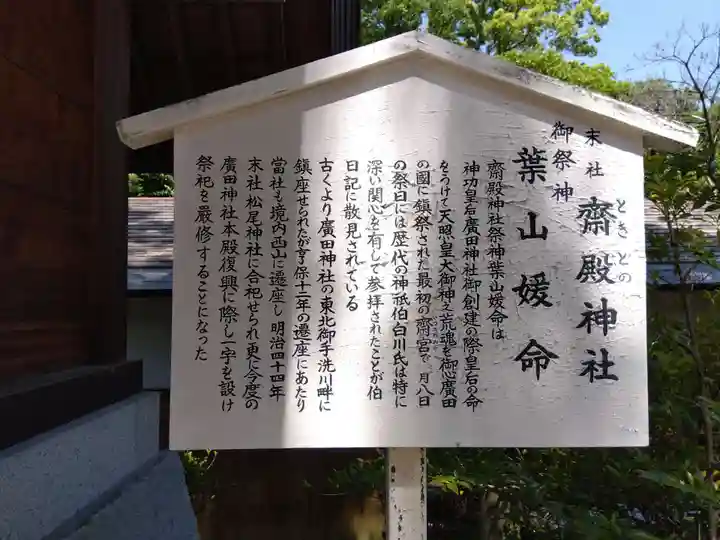 末社 齋殿神社
ときとの
御祭神 葉山媛命
齋殿神社祭神葉山媛命は
神功皇后廣田神社御創建の際皇后の命
をうけて天照皇大御神之荒魂を御心廣田
の國に鎮祭された最初の齋宮で 月八日
の祭日には歴代の神祇伯白川氏は特に
深い関心を有して参拝されたことが伯
日記に散見されている
古くより廣田神社の東北御手洗川畔に
鎮座せられたが享保十二年の遷座にあたり
當社も境内西山に遷座し明治四十四年
末社松尾神社に合祀せられ更に今度の
廣田神社本殿復興に際し一宇を設け
祭祀を嚴修することになった